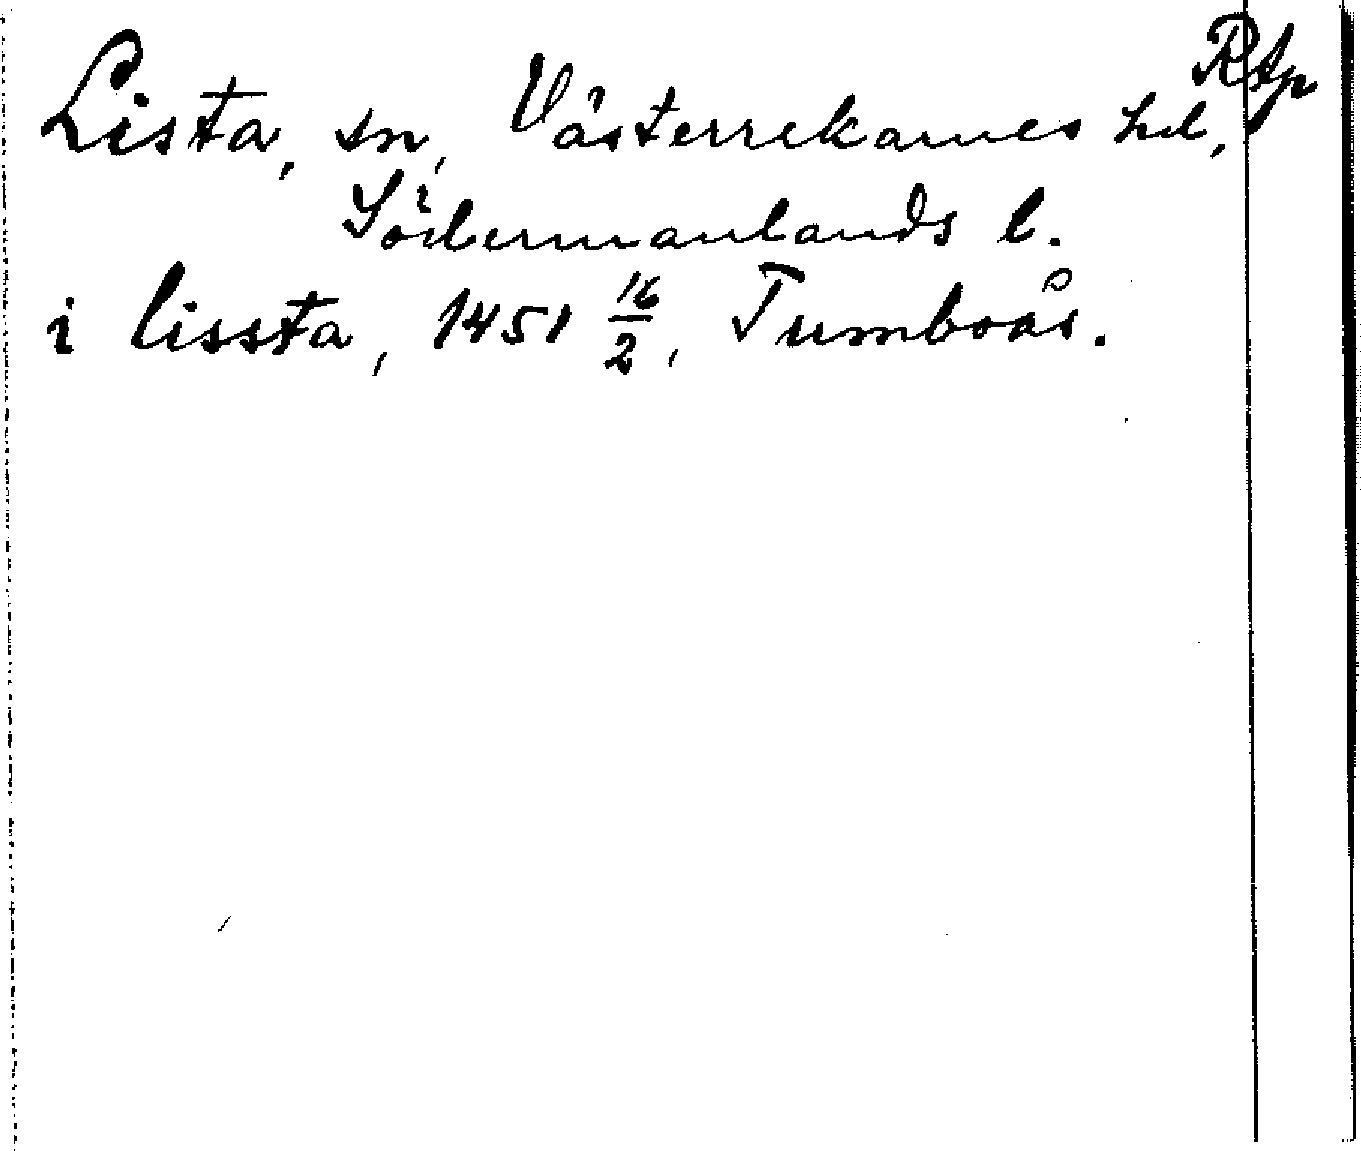 Rtp
Lista, sn, Västerrekarnes hd,
Södermanlands l.
i lissta, 1451 16/2, Tumboås.